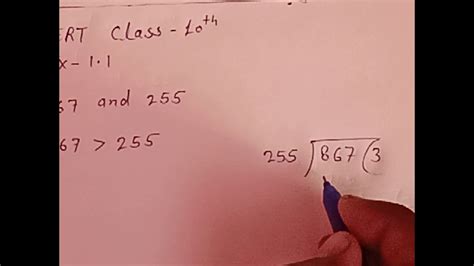 ERT Class - 10th
x - 1.1
67 and 255
67 > 255
255 ) 867 ( 3